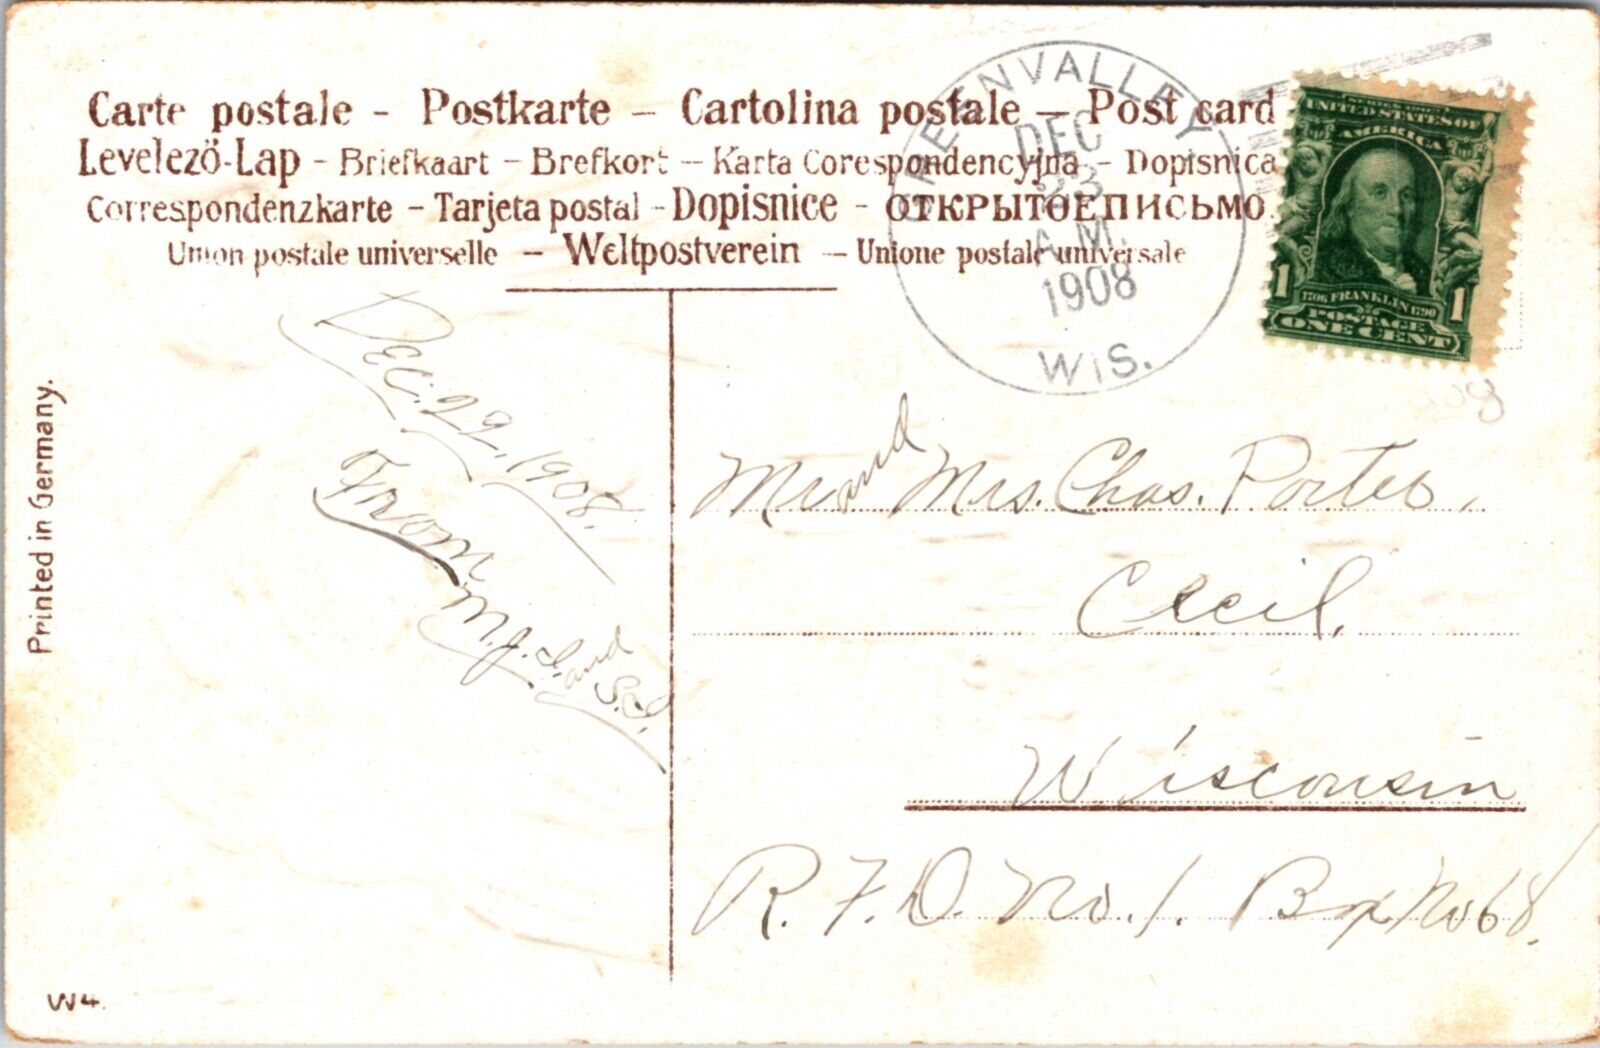 Carte postale - Postkarte - Cartolina postale - Post card
Levelező-Lap - Briefkaart - Brefkort - Karta Corespondencyjna - Dopisnica
Correspondenzkarte - Tarjeta postal - Dopisnice - ОТКРЫТОЕ ПИСЬМО.
Union postale universelle - Weltpostverein - Unione postale universale
GREENVALLEY,
DEC
23
A.M.
1908
WIS.
SERIES 1902
UNITED STATES OF
AMERICA
1706 FRANKLIN 1790
1 1
POSTAGE
ONE CENT
Dec. 22, 1908.
From
M.J.I. and S.I.
Mr and Mrs. Chas. Porter,
Cecil,
Wisconsin
R.F.D. No. 1. Box No 68.
Printed in Germany.
W4.